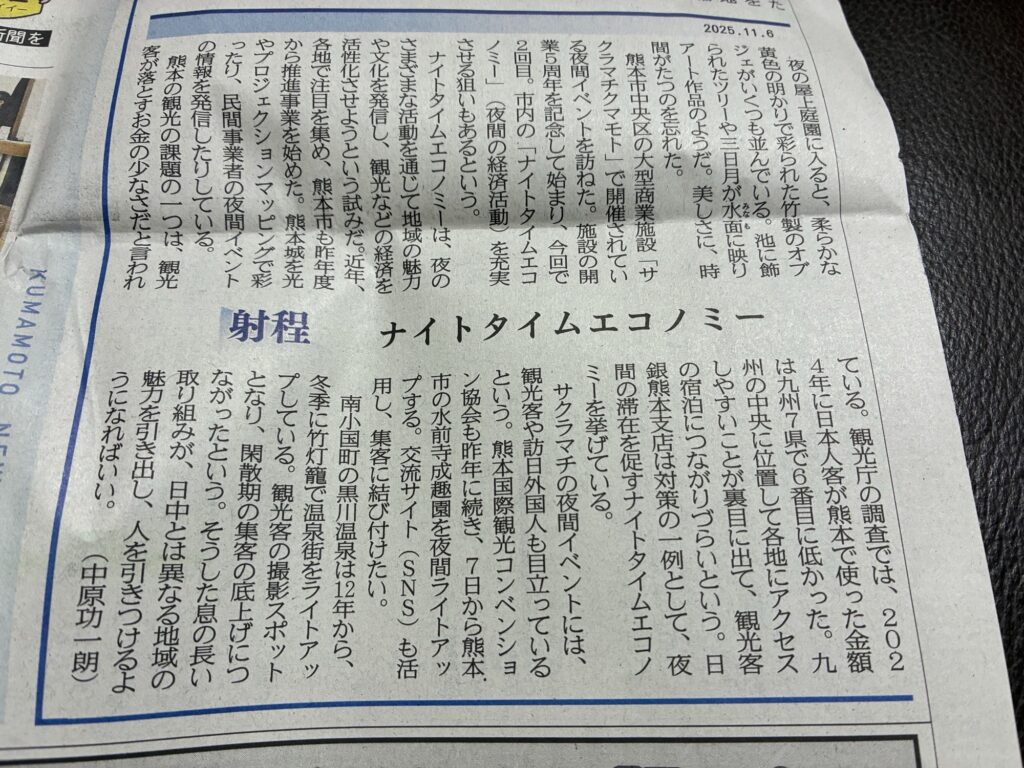 2025.11.6
射程
ナイトタイムエコノミー
夜の屋上庭園に入ると、柔らかな
黄色の明かりで彩られた竹製のオブ
ジェがいくつも並んでいる。池に飾
られたツリーや三日月が水面に映り
みなも
アート作品のようだ。美しさに、時
間がたつのを忘れた。
熊本市中央区の大型商業施設「サ
クラマチクマモト」で開催されてい
る夜間イベントを訪ねた。施設の開
業5周年を記念して始まり、今回で
2回目。市内の「ナイトタイムエコ
ノミー」（夜間の経済活動）を充実
させる狙いもあるという。
ナイトタイムエコノミーは、夜の
さまざまな活動を通じて地域の魅力
や文化を発信し、観光などの経済を
活性化させようという試みだ。近年、
各地で注目を集め、熊本市も昨年度
から推進事業を始めた。熊本城を光
やプロジェクションマッピングで彩
ったり、民間事業者の夜間イベント
の情報を発信したりしている。
熊本の観光の課題の一つは、観光
客が落とすお金の少なさだと言われ
ている。観光庁の調査では、202
4年に日本人客が熊本で使った金額
は九州7県で6番目に低かった。九
州の中央に位置して各地にアクセス
しやすいことが裏目に出て、観光客
の宿泊につながりづらいという。日
銀熊本支店は対策の一例として、夜
間の滞在を促すナイトタイムエコノ
ミーを挙げている。
サクラマチの夜間イベントには、
観光客や訪日外国人も目立っている
という。熊本国際観光コンベンショ
ン協会も昨年に続き、7日から熊本
市の水前寺成趣園を夜間ライトアッ
プする。交流サイト（SNS）も活
用し、集客に結び付けたい。
南小国町の黒川温泉は12年から、
冬季に竹灯籠で温泉街をライトアッ
プしている。観光客の撮影スポット
となり、閑散期の集客の底上げにつ
ながったという。そうした息の長い
取り組みが、日中とは異なる地域の
魅力を引き出し、人を引きつけるよ
うになればいい。
（中原功一朗）
新聞を
KUMAMOTO NEW